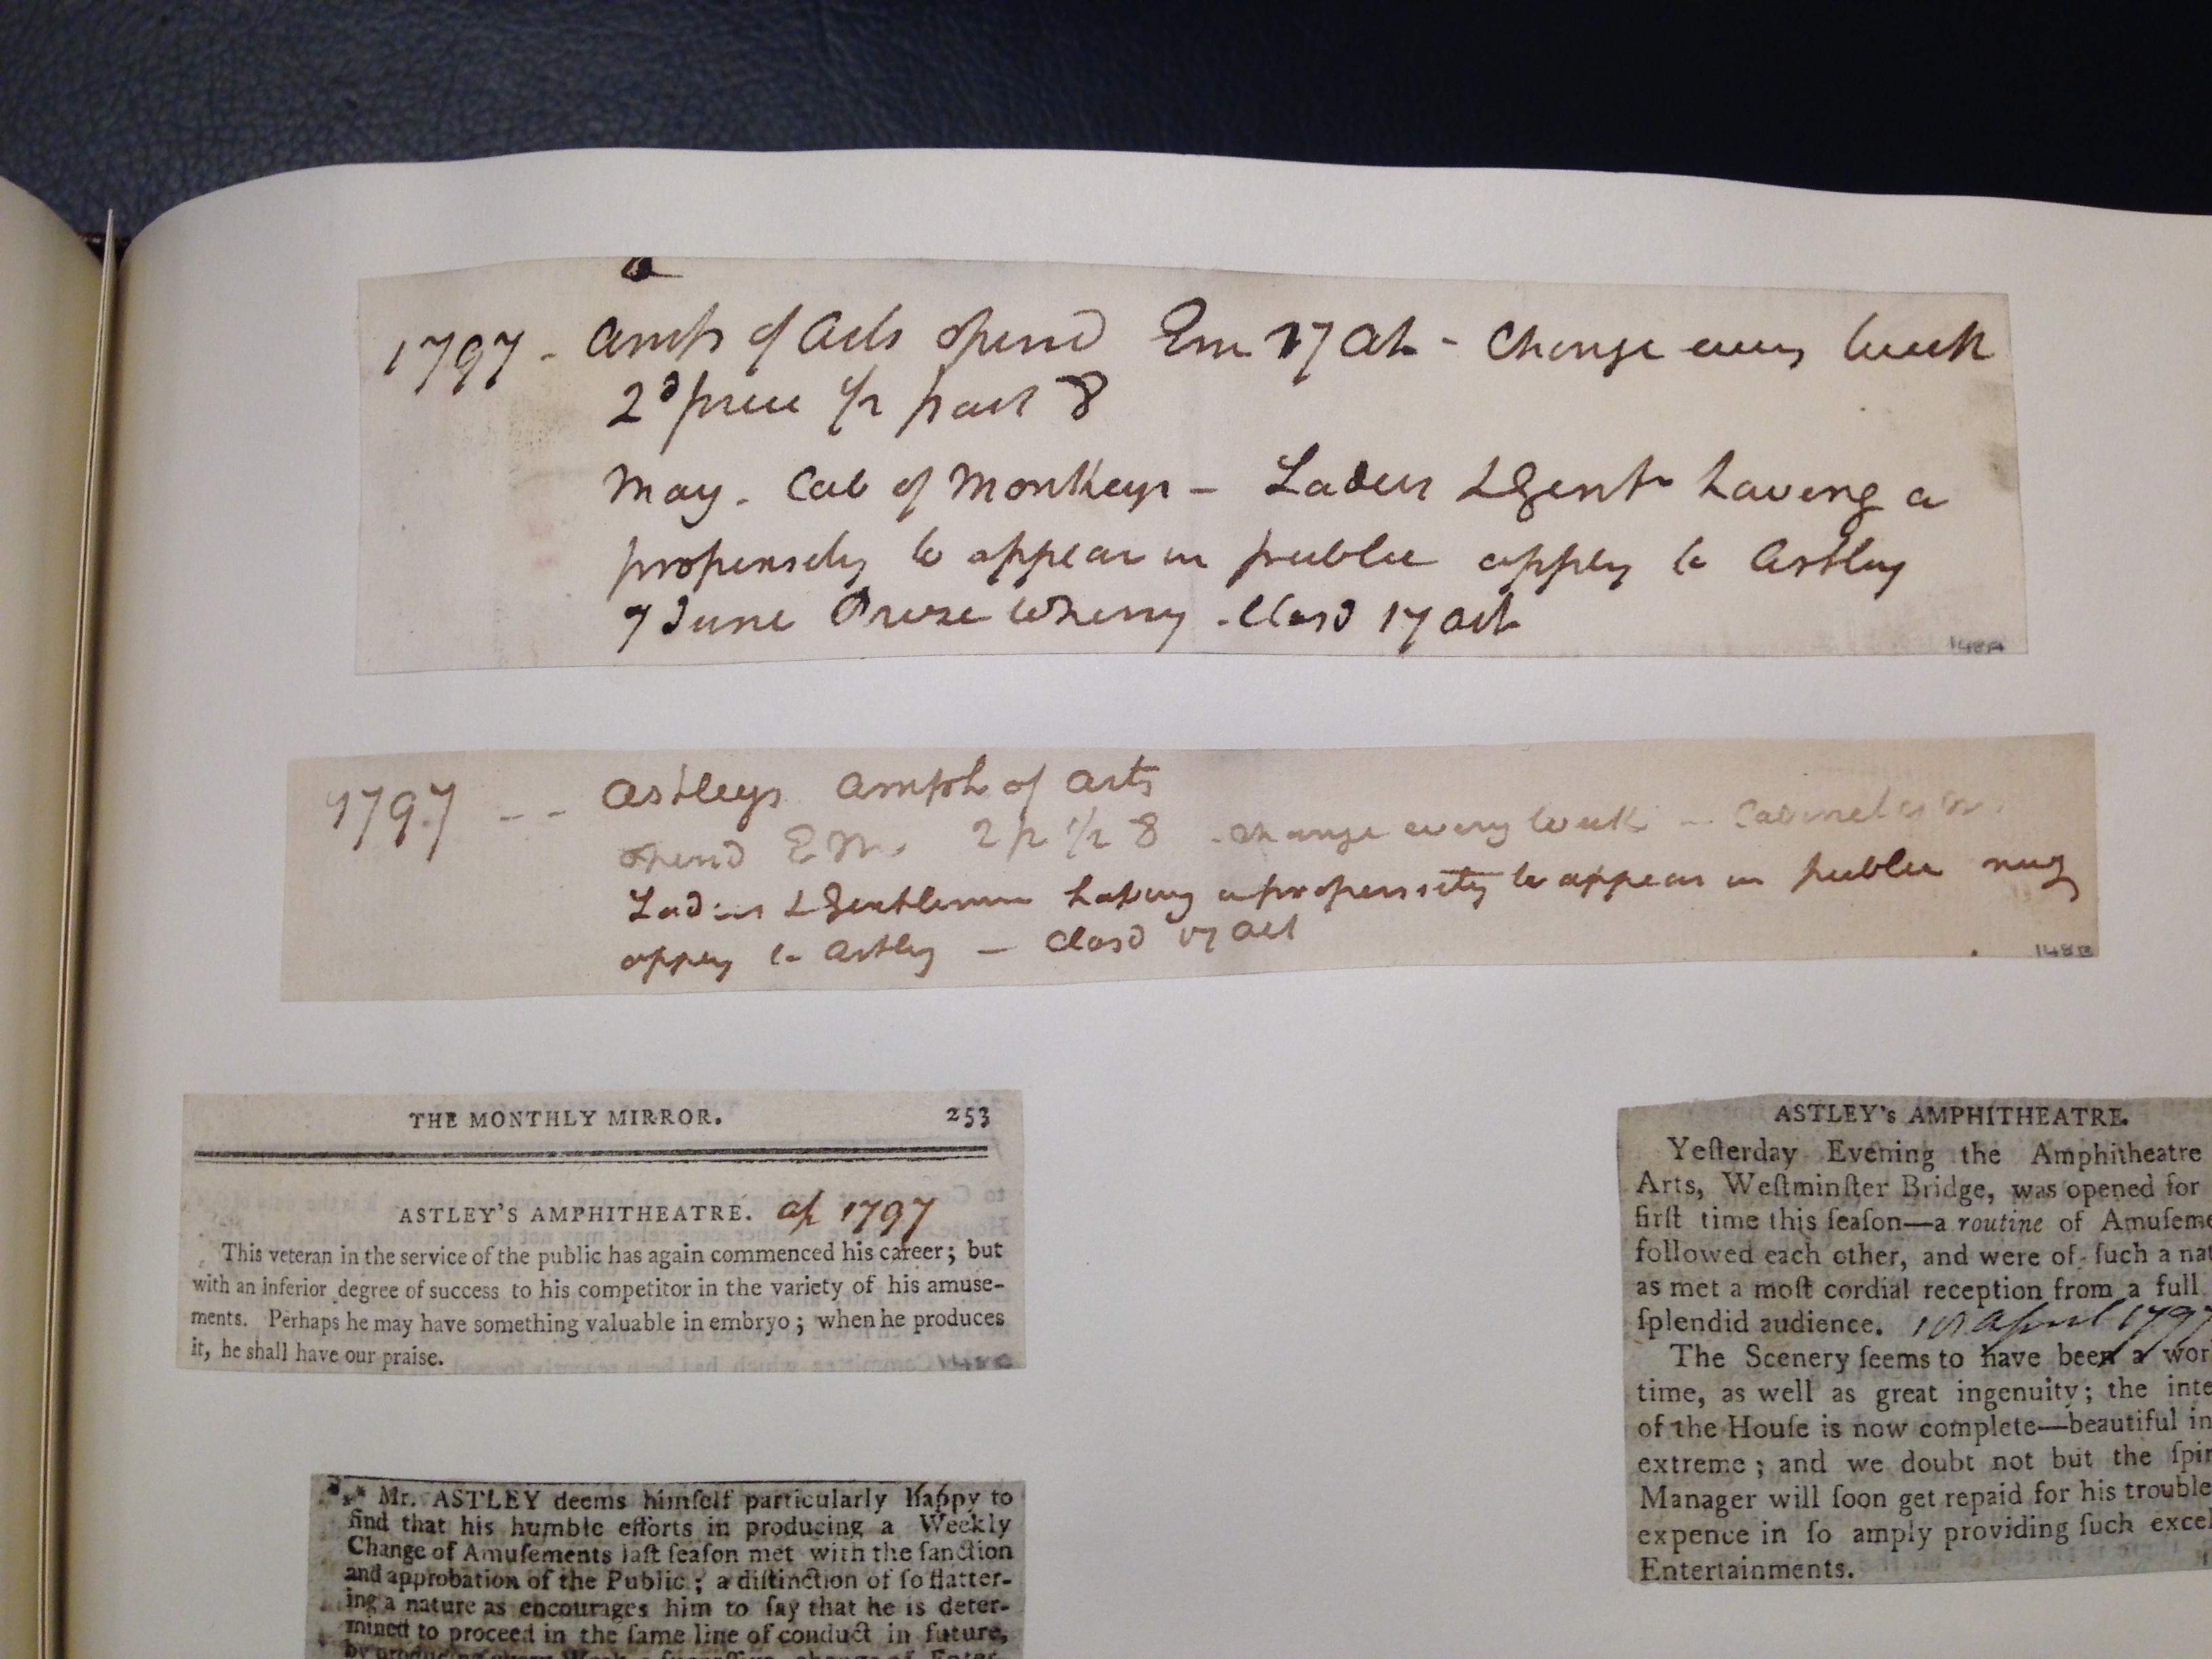 1797 - Amp of Arts opend Em 17 Ap - Change every Week
2d price 1/2 past 8
May. Cab of Monkeys - Ladies & Gents having a
propensity to appear in public apply to Astley
7 June Prize Wherry - Closd 17 Oct
148A
1797 -- Astleys Amph of Arts
opend E M. 2 p 1/2 8 - Change every Week - Cabinet
Ladies & Gentlemen having a propensity to appear in public may
apply to Astley - Closd 17 Oct
148B
THE MONTHLY MIRROR. 253
ASTLEY'S AMPHITHEATRE. Ap 1797
This veteran in the service of the public has again commenced his career; but
with an inferior degree of success to his competitor in the variety of his amuse-
ments. Perhaps he may have something valuable in embryo; when he produces
it, he shall have our praise.
*** Mr. ASTLEY deems himſelf particularly happy to
find that his humble efforts in producing a Weekly
Change of Amuſements laſt ſeaſon met with the ſanction
and approbation of the Public; a diſtinction of ſo flatter-
ing a nature as encourages him to ſay that he is deter-
mined to proceed in the ſame line of conduct in future,
ASTLEY's AMPHITHEATRE.
Yeſterday Evening the Amphitheatre
Arts, Weſtminſter Bridge, was opened for
firſt time this ſeaſon—a routine of Amuſeme
followed each other, and were of ſuch a nat
as met a moſt cordial reception from a full
ſplendid audience. April 1797
The Scenery ſeems to have been a wor
time, as well as great ingenuity; the inte
of the Houſe is now complete—beautiful in
extreme; and we doubt not but the ſpir
Manager will ſoon get repaid for his trouble
expence in ſo amply providing ſuch excel
Entertainments.